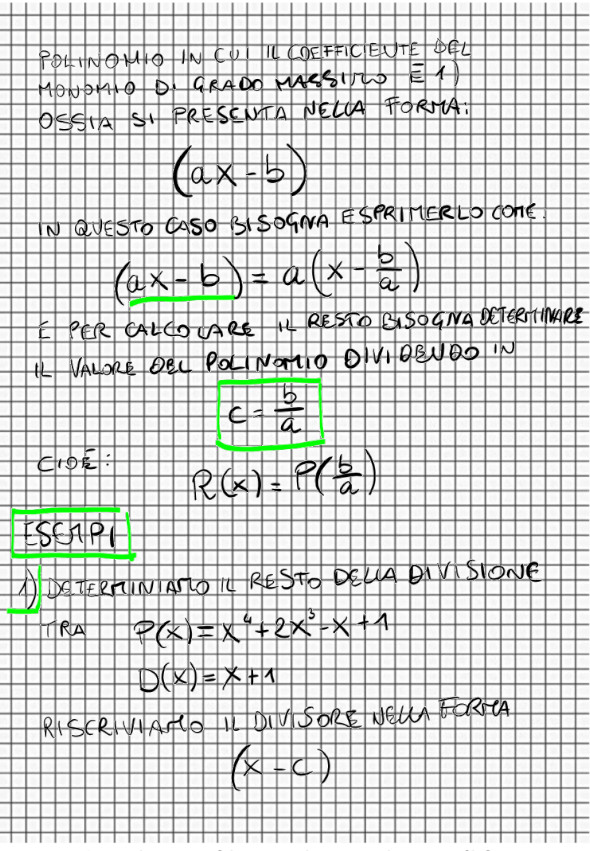 POLINOMIO IN CUI IL COEFFICIENTE DEL
MONOMIO DI GRADO MASSIMO È 1)
OSSIA SI PRESENTA NELLA FORMA:
(ax-b)
IN QUESTO CASO BISOGNA ESPRIMERLO COME:
(ax-b) = a(x - b/a)
E PER CALCOLARE IL RESTO BISOGNA DETERMINARE
IL VALORE DEL POLINOMIO DIVIDENDO IN
c = b/a
CIOÈ:
R(x) = P(b/a)
ESEMPI
1) DETERMINIAMO IL RESTO DELLA DIVISIONE
TRA P(x) = x⁴+2x³-x+1
D(x) = x+1
RISCRIVIAMO IL DIVISORE NELLA FORMA
(x-c)